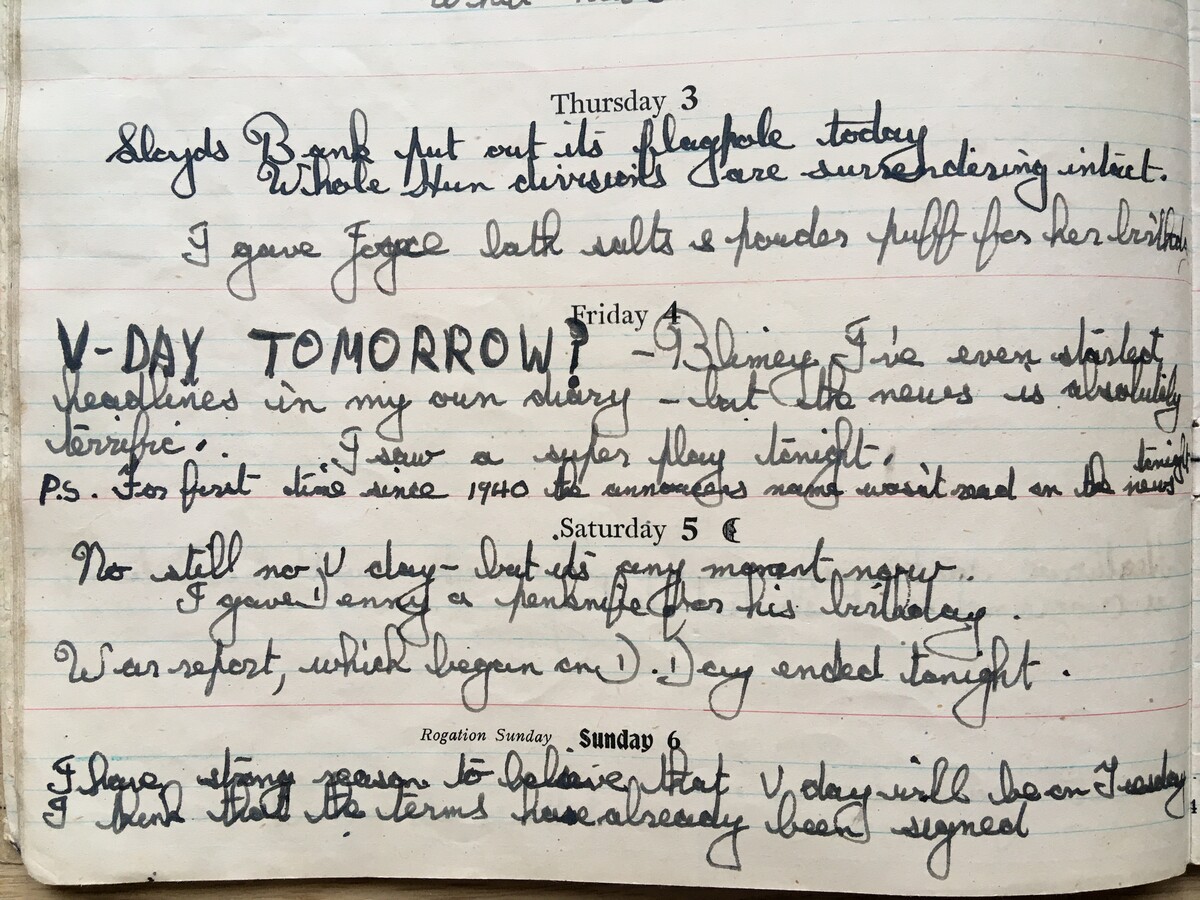 Thursday 3
Lloyds Bank put out its flagpole today
Whole Hun divisions are surrendering intact.
I gave Joyce bath salts & powder puff for her birthday
Friday 4
V-DAY TOMORROW? - Blimey I've even started
headlines in my own diary - but the news is absolutely
terrific. I saw a super play tonight.
tonight-
P.S. For first time since 1940 the announcers name wasn't read on the news
Saturday 5
No still no V day - but its any moment now..
I gave Denny a penknife for his birthday.
War report, which began on D. Day ended tonight.
Rogation Sunday Sunday 6
I have strong reason to believe that V day will be on Tuesday
I think that the terms have already been signed